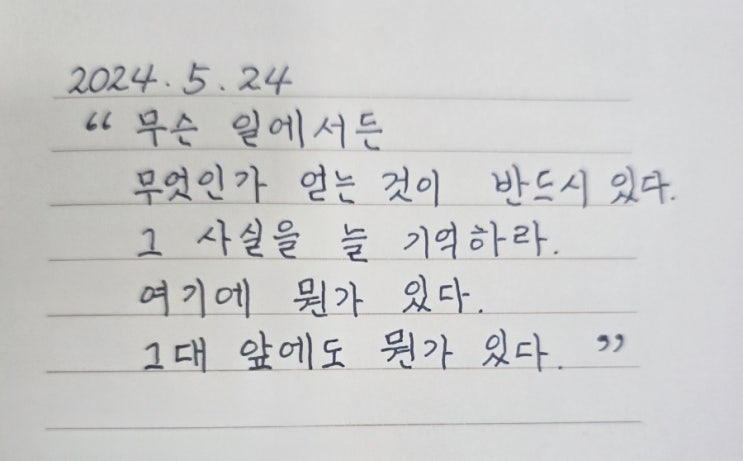 2024. 5. 24
“ 무슨 일에서든
무엇인가 얻는 것이 반드시 있다.
그 사실을 늘 기억하라.
여기에 뭔가 있다.
그대 앞에도 뭔가 있다. ”